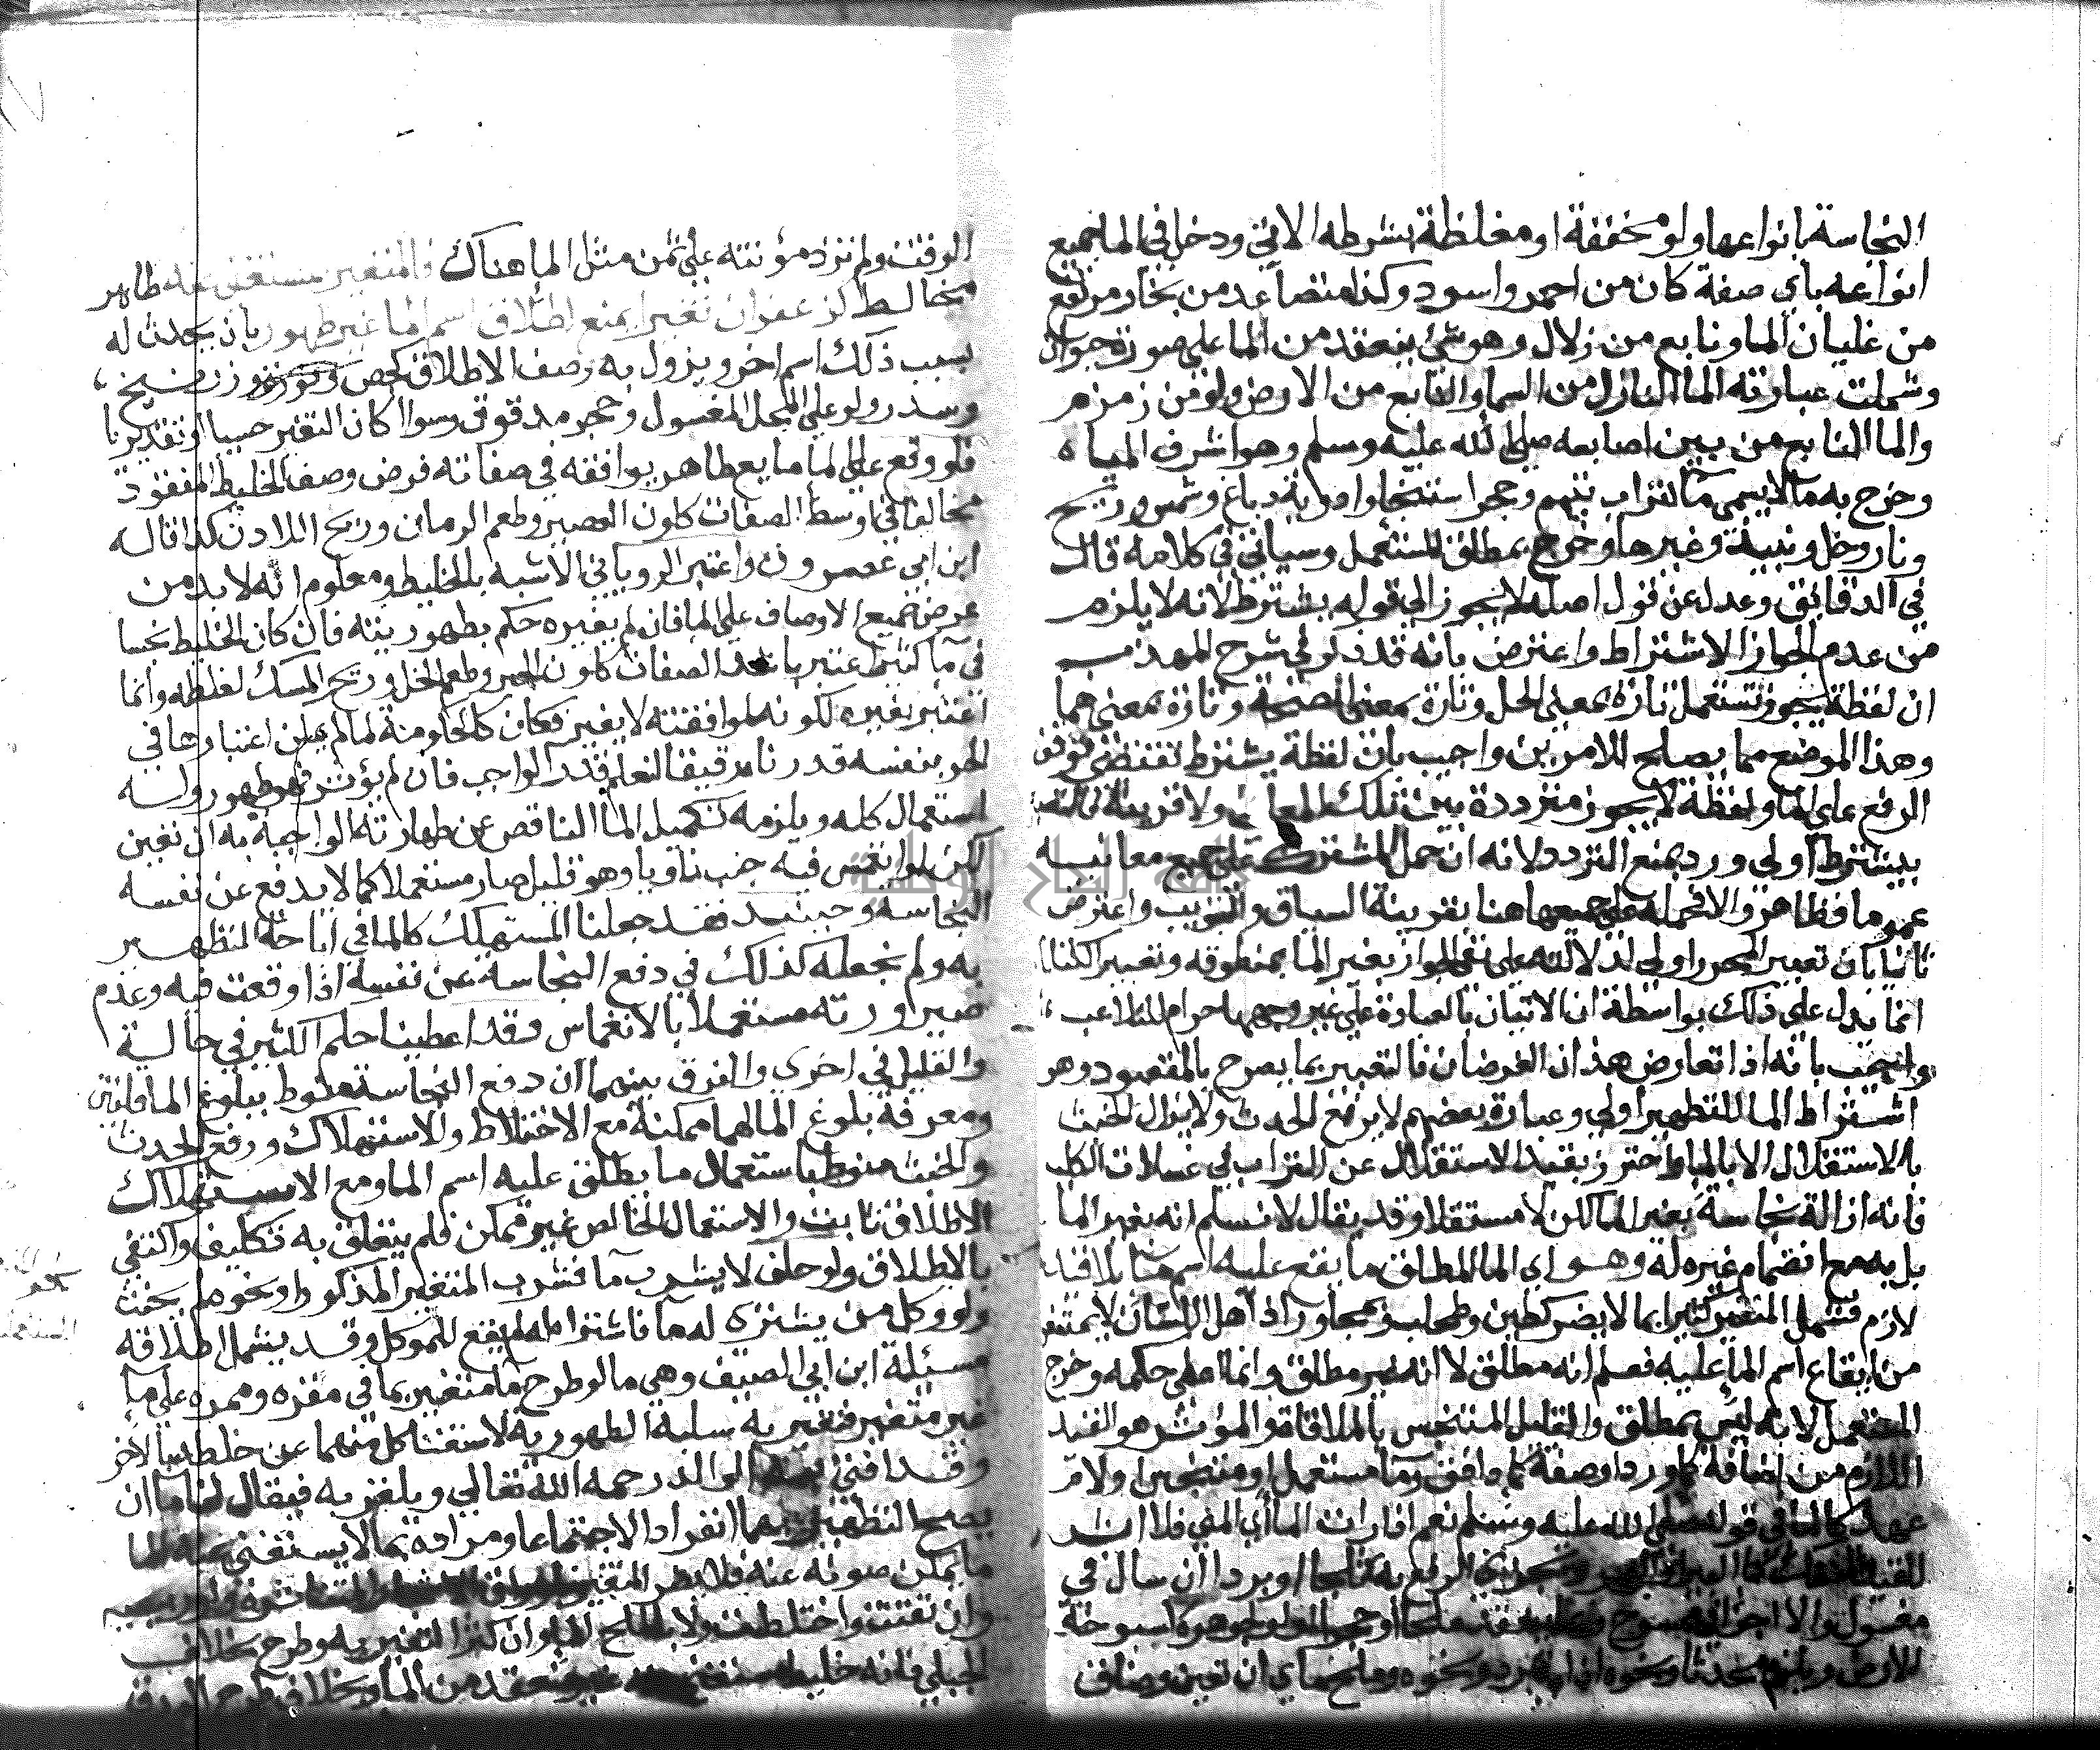 النجاسة بانواعها ولو مخففة او مغلظة بشرطه الاتي ودخل في الما جميع
انواعه باي صفة كان من احمر واسود وكذا متصاعد من بخار مرتفع
من غليان الما ونابع من زلال وهو شئ ينعقد من الما على صورة حيوان
وشملت عبارته الما النازل من السما والنابع من الارض ولو من زمزم
والما النابع من بين اصابعه صلى الله عليه وسلم وهو اشرف المياه
وخرج به ما لا يسمى ما كتراب تيمم وحجر استنجا وادوية دباغ وشمس وريح
ونار وخل ونبيذ وغيرها وخرج بمطلق المستعمل وسياتي في كلامه قال
في الدقائق وعدل عن قول اصله لا يجوز الى قوله يشترط لانه لا يلزم
من عدم الجواز الاشتراط واعترض بانه قد ذكر في شرح المهذب
ان لفظة يجوز تستعمل تارة بمعنى الحل وتارة بمعنى الصحة وتارة بمعنى هما
وهذا الموضع مما يصلح للامرين واجيب بان لفظة يشترط تقتضي توقف
الرفع على الما ولفظة لا يجوز مترددة بين تلك المعاني ولا قرينة فالتعبير
بيشترط اولى ورد بمنع التردد لانه ان حمل المشترك على جميع معانيه
عموما فظاهر والا فحمله على جميعها هنا بقرينة السياق والتبويب واعترض
ثانيا بان تعبير المحرر اولى لدلالته على نفي الجواز بغير الما بمنطوقه وتعبير الكتاب
انما يدل على ذلك بواسطة ان الاتيان بالعبادة على غير وجهها حرام للتلاعب
واجيب بانه اذا تعارض هذان الغرضان فالتعبير بما يصرح بالمقصود وهو
اشتراط الما للتطهير اولى وعبارة بعضهم لا يرفع الحدث ولا يزال الخبث
بالاستقلال الا بالما واحترز بقيد الاستقلال عن التراب في غسلات الكلب
فانه ازالة نجاسة بغير الما لكن لا مستقلا وقد يقال لا نسلم انه بغير الما
بل به مع انضمام غيره له وهو اي الما المطلق ما يقع عليه اسم ما بلا قيد
لازم فشمل المتغير كثيرا بما لا يضر كطين وطحلب ومجاور اذ اهل اللسان لا يمتنع
من ايقاع اسم الما عليه فعلم انه مطلق لا انه غير مطلق وانما اعطي حكمه وخرج
المستعمل لانه ليس بمطلق والقليل المتنجس بالملاقاة والمؤثر هو القيد
اللازم من اضافة كماورد او صفة كما دافق وما مستعمل او متنجس او لام
عهد كالما في قوله صلى الله عليه وسلم نعم اذا رات الما اي المني فلا اثر
للقيد المنفك كما البير والبحر ويجوز الرفع به ثلجا او بردا ان سال في
مغسول والا اجزا في ممسوح
للارض ويلزم محدثا ونحوه اذابة برد ونحوه وملح ماي ان تعين وضاق
الوقت ولم تزد مؤنته على ثمن مثل الما هناك فالمتغير بمستغنى عنه طاهر
مخالط كزعفران تغيرا يمنع اطلاق اسم الما غير طهور بان يحدث له
بسبب ذلك اسم اخر ويزول به وصف الاطلاق كجص ونورة وزرنيخ
وسدر ولو على المحل المغسول وحجر مدقوق وسوا كان التغير حسيا او تقديريا
فلو وقع على الما مايع طاهر يوافقه في صفاته فرض وصف الخليط المفقود
مخالفا في اوسط الصفات كلون العصير وطعم الرمان وريح اللادن كذا قاله
ابن ابي عصرون واعتبر الروياني الاشبه بالخليط ومعلوم انه لا بد من
عرض جميع الاوصاف على الما فان لم يغيره حكم بطهوريته فان كان الخليط نجسا
في ما كثير اعتبر باشد الصفات كلون الحبر وطعم الخل وريح المسك لغلظه وانما
اعتبر بغيره لكونه لموافقته لا يغير فكان كالحكومة لما لم يمكن اعتبارها في
الحر بنفسه قدرناه رقيقا لنعلم قدر الواجب فان لم يؤثر فهو طهور وله
استعمال كله ويلزمه تكميل الما الناقص عن طهارته الواجبة به ان تعين
لكن لو انغمس فيه جنب ناويا وهو قليل صار مستعملا كما لا يدفع عن نفسه
النجاسة وحينئذ فقد جعلنا المستهلك كالما في اباحة التطهير
به ولم نجعله كذلك في دفع النجاسة عن نفسه اذا وقعت فيه وعدم
صيرورته مستعملا بالانغماس فقد اعطينا حكم الكثير في حالة
والقليل في اخرى والفرق بينهما ان دفع النجاسة منوط ببلوغ الما قلتين
ومعرفة بلوغ الما لهما ممكنة مع الاختلاط والاستهلاك ورفع الحدث
والخبث منوط باستعمال ما يطلق عليه اسم الما ومع الاستهلاك
الاطلاق ثابت والاستعمال الخالص غير ممكن فلم يتعلق به تكليف واكتفي
بالاطلاق ولو حلف لا يشرب ما فشرب المتغير المذكور او نحوه لم يحنث
ولو وكل من يشتري له ما فاشتراه له لم يقع للموكل وقد يشمل اطلاقه
مسئلة ابن ابي الصيف وهي ما لو طرح ما متغير بما في مقره وممره على ما
غير متغير فتغير به سلبه الطهورية لاستغنا كل منهما عن خلطه بالاخر
وقد افتى به الوالد رحمه الله تعالى ويلغز به فيقال لنا ماان
يصح التطهير بهما انفرادا لا اجتماعا ومراده بما لا يستغنى عنه الما
ما يمكن صونه عنه فلا يضر المتغير
وان تفتت واختلطت ولا بالملح المايي وان كثر التغير به وطرح بخلاف
الجبلي فانه خليط مستغنى عنه غير منعقد من الما وبخلاف طرح الورق